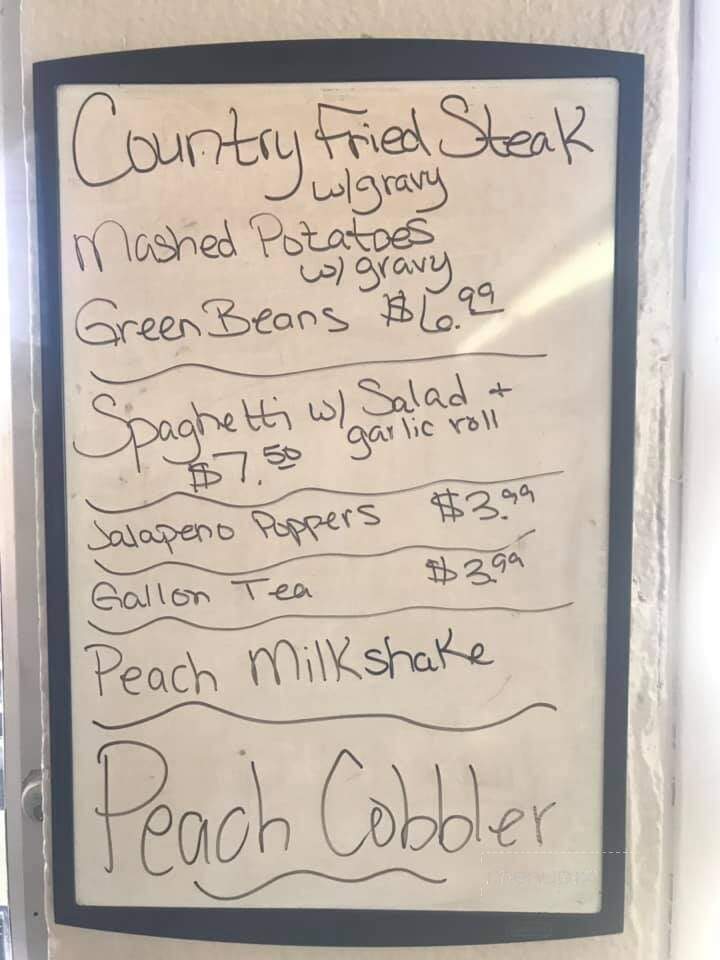 Country Fried Steak
w/gravy
Mashed Potatoes
w/ gravy
Green Beans $6.99
Spaghetti w/ Salad +
garlic roll
$7.50
Jalapeno Poppers $3.99
Gallon Tea $3.99
Peach Milkshake
Peach Cobbler